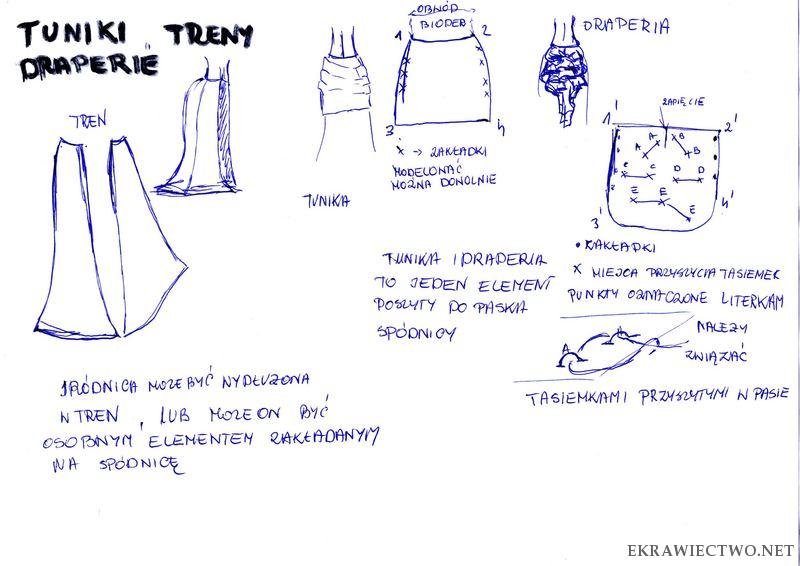 TUNIKI, TRENY
DRAPERIE
TREN
TUNIKA
OBWÓD
BIODER
1
2
3
4
x → ZAKŁADKI
MODELOWAĆ
MOŻNA DOWOLNIE
DRAPERIA
ZAPIĘCIE
1'
2'
A
A
B
B
C
C
D
D
E
E
E
3'
4'
• ZAKŁADKI
x MIEJCA PRZYSZYCIA TASIEMEK
PUNKTY OZNACZONE LITERKAM
A
NALEŻY
ZWIĄZAĆ
TASIEMKAMI PRZYSZYTYMI W PASIE
TUNIKA I DRAPERIA
TO JEDEN ELEMENT
POSZYTY DO PASKA
SPÓDNICY
SPÓDNICA MOŻE BYĆ WYDŁUŻONA
W TREN, LUB MOŻE ON BYĆ
OSOBNYM ELEMENTEM ZAKŁADANYM
NA SPÓDNICĘ
EKRAWIECTWO.NET